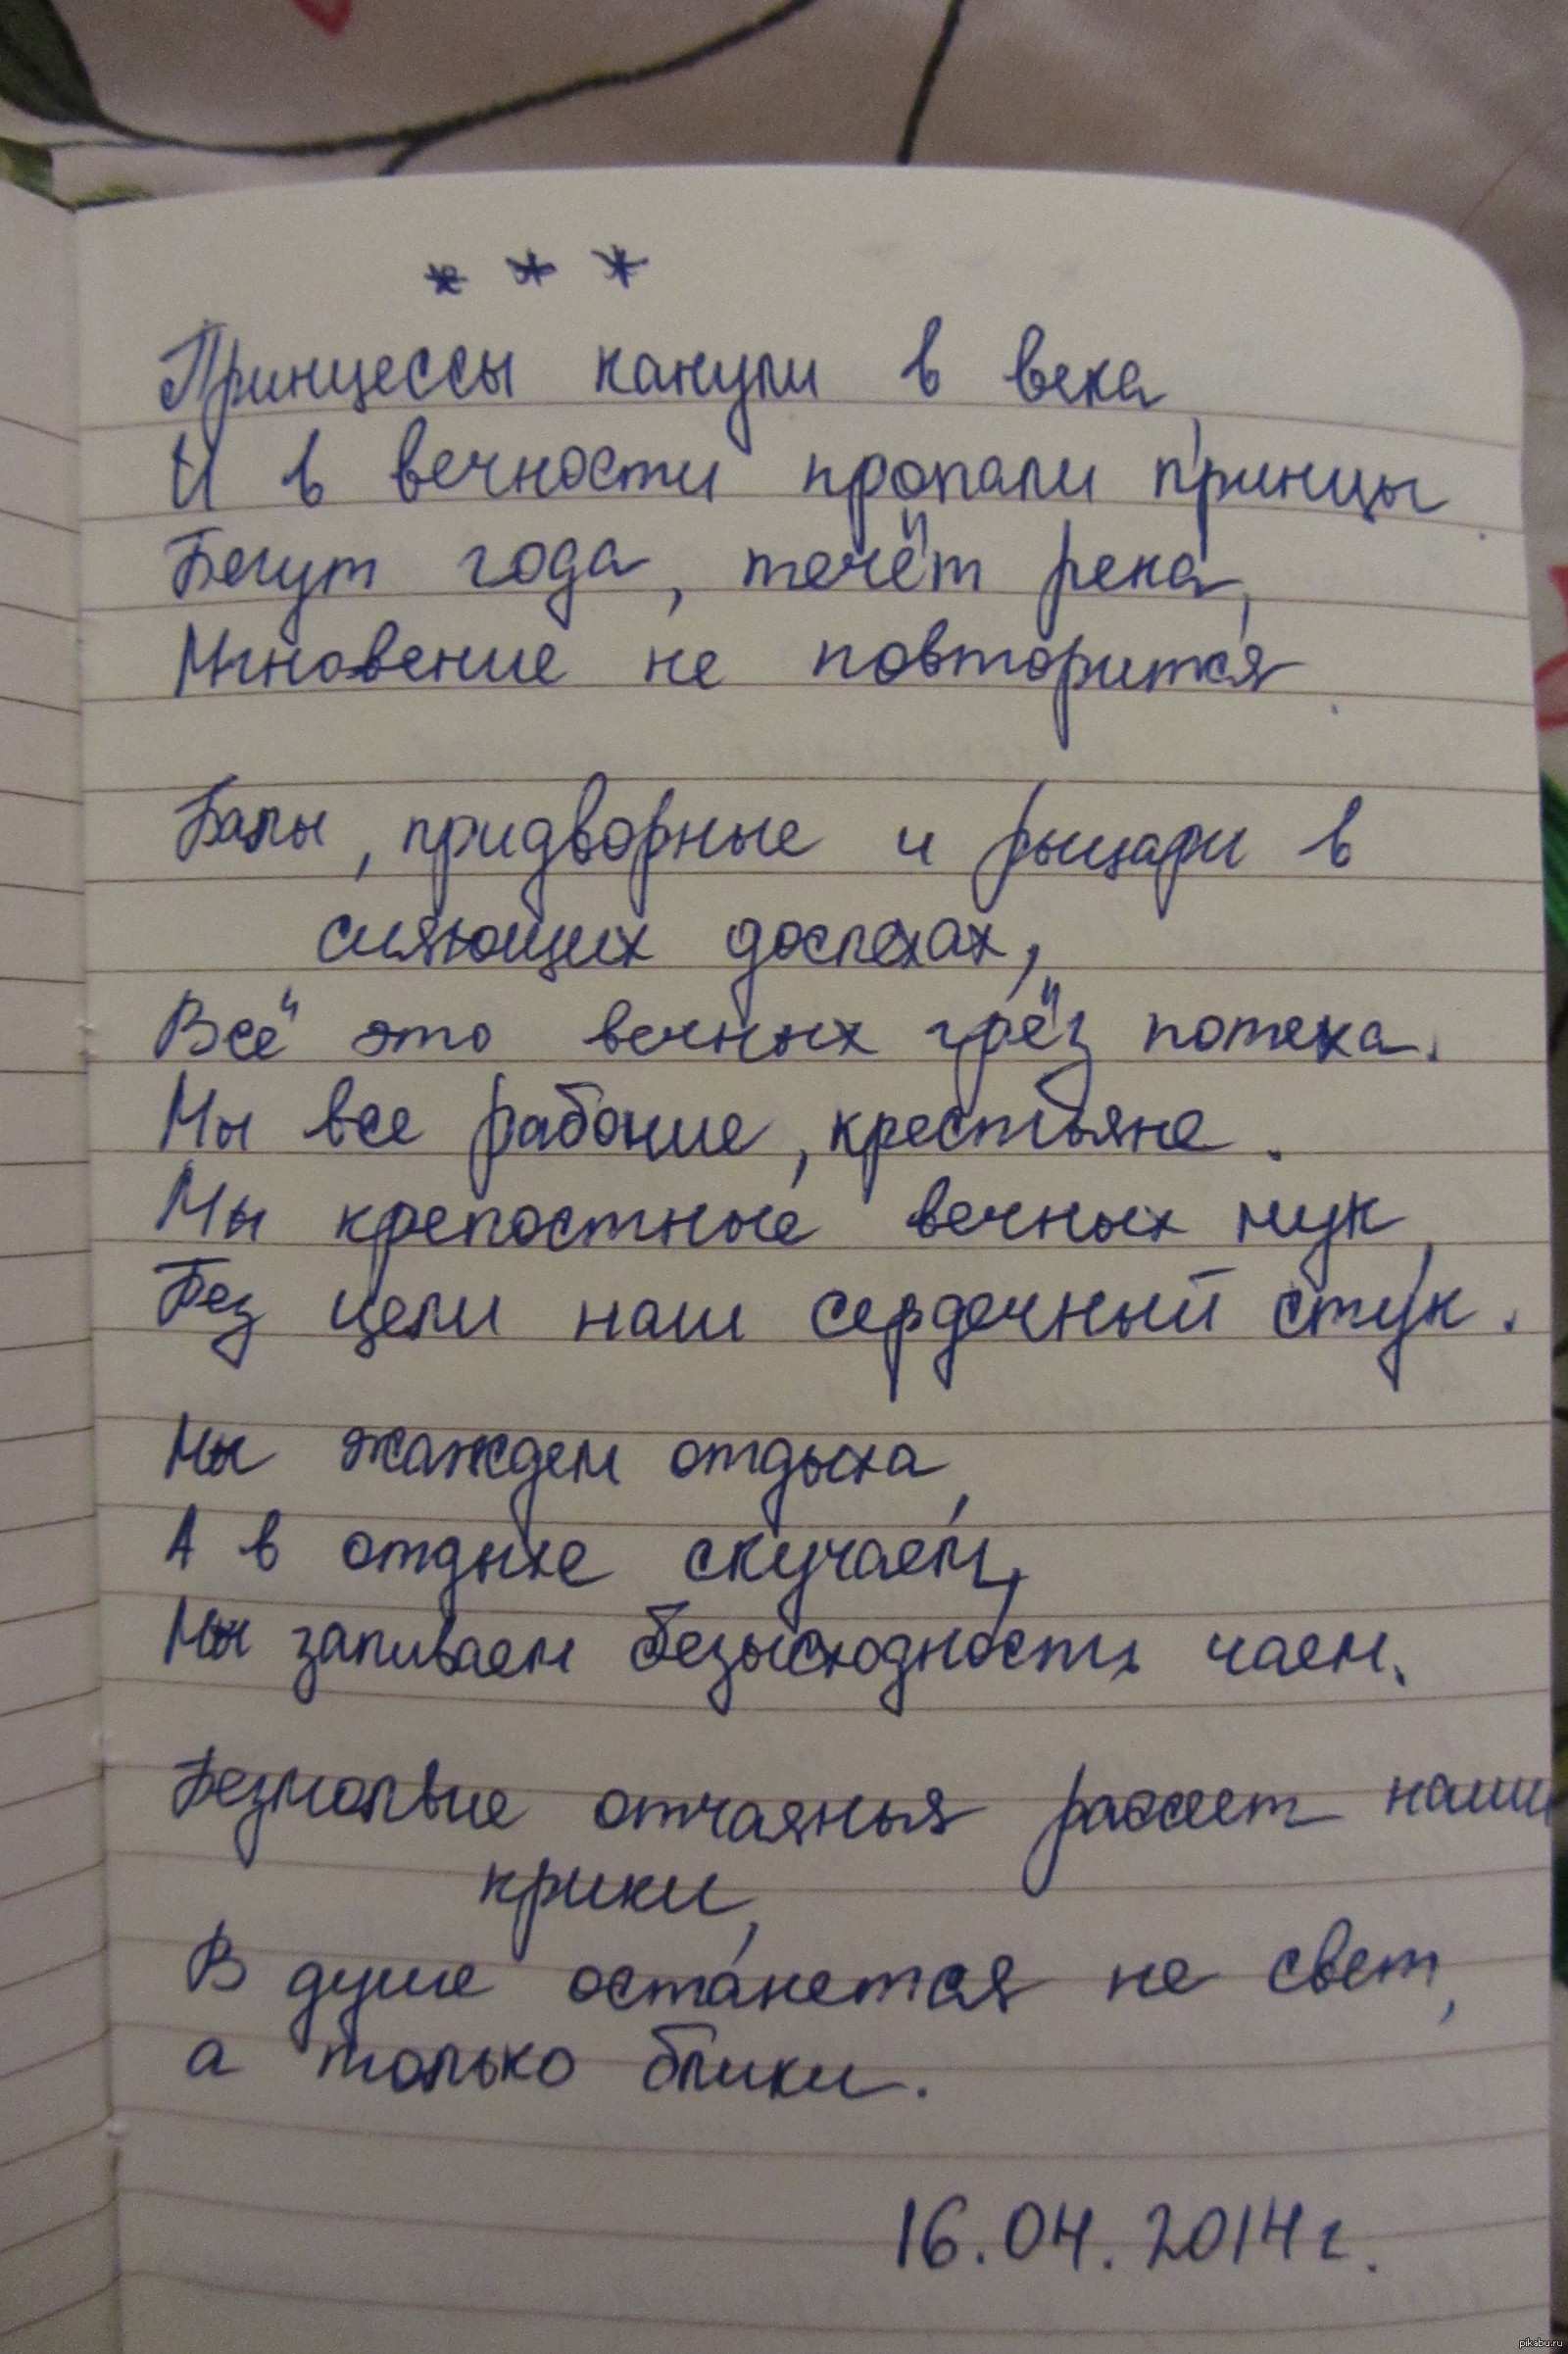 * * *
Принцессы канули в века,
И в вечности пропали принцы.
Бегут года, течёт река,
Мгновение не повторится.
Балы, придворные и рыцари в
сияющих доспехах,
Всё это вечных грёз потеха.
Мы все рабочие, крестьяне.
Мы крепостные вечных мук,
Без цели наш сердечный стук.
Мы жаждем отдыха,
А в отдыхе скучаем,
Мы запиваем безысходность чаем.
Безмолвие отчаянья наши
крики,
В душе останется не свет,
а только блики.
16.04.2014г.
pikabu.ru